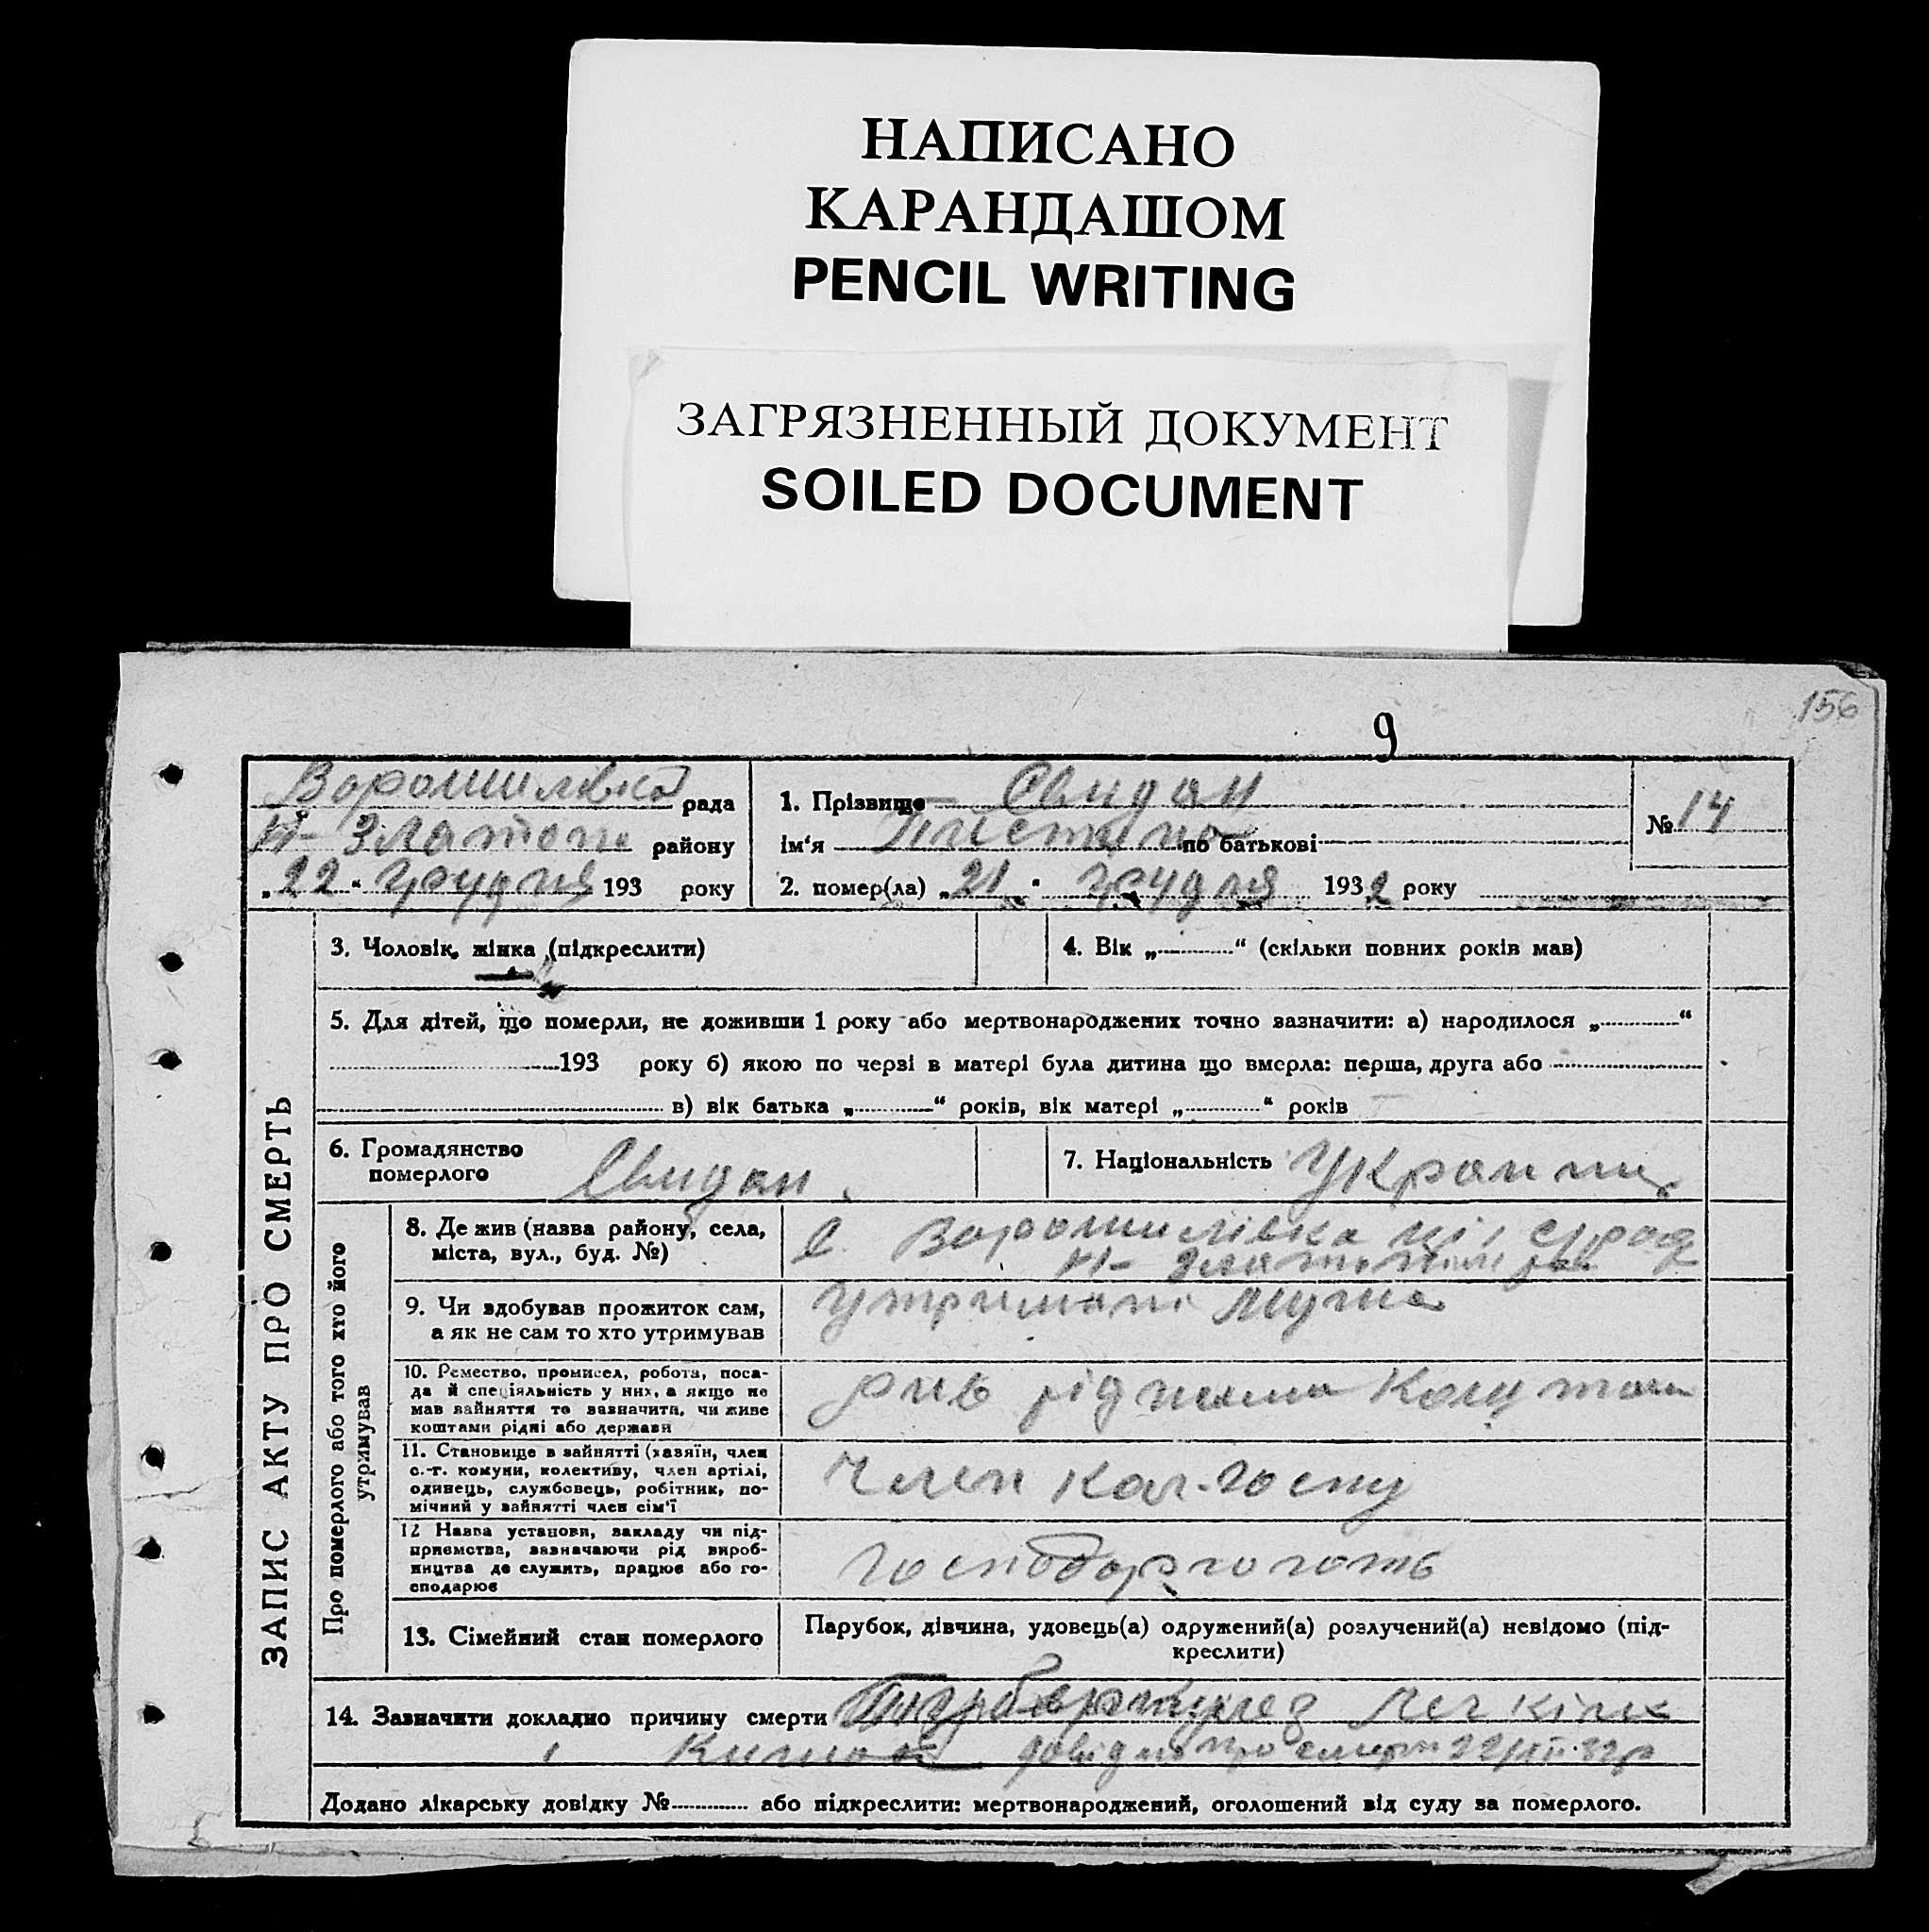 НАПИСАНО
КАРАНДАШОМ
PENCIL WRITING
ЗАГРЯЗНЕННЫЙ ДОКУМЕНТ
SOILED DOCUMENT
156
9
Ворошилівка рада
Н- Златопол району
„22" грудня 193 року
1. Прізвище Свидан
ім'я по батькові
2. помер(ла) „21" грудня 1932 року
№ 14
ЗАПИС АКТУ ПРО СМЕРТЬ
3. Чоловік, жінка (підкреслити)
4. Вік „ “ (скільки повних років мав)
5. Для дітей, що померли, не доживши 1 року або мертвонароджених точно зазначити: а) народилося „ “
193 року б) якою по черзі в матері була дитина що вмерла: перша, друга або
в) вік батька „ “ років, вік матері „ “ років
6. Громадянство
померлого
Свидан
7. Національність Украинц
Про померлого або того хто його
утримував
8. Де жив (назва району, села,
міста, вул., буд. №)
с. Ворошилівка
Н-
9. Чи здобував прожиток сам,
а як не сам то хто утримував
Утримані мужа
10. Ремество, промисел, робота, поса-
да й спеціяльність у них, а якщо не
мав зайняття то зазначити, чи живе
коштами рідні або держави
11. Становище в зайнятті (хазяїн, член
с.-г. комуни, колективу, член артілі,
одинець, службовець, робітник, по-
мічний у зайнятті член сім'ї
Член кол-госпу
12 Назва установи, закладу чи під-
приємства, зазначаючи рід вироб-
ництва де служить, працює або го-
сподарює
господорюють
13. Сімейний стан померлого
Парубок, дівчина, удовець(а) одружений(а) розлучений(а) невідомо (під-
креслити)
14. Зазначити докладно причину смерти
Додано лікарську довідку № або підкреслити: мертвонароджений, оголошений від суду за померлого.